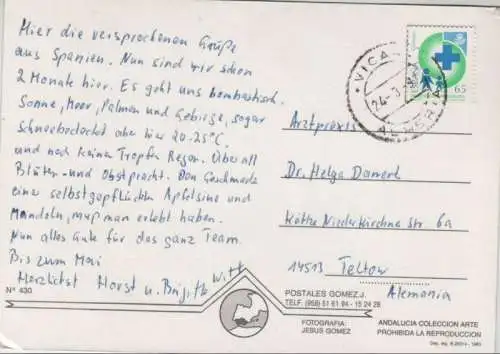 Hier die versprochenen Grüße
aus Spanien. Nun sind wir schon
2 Monate hier. Es geht uns bombastisch.
Sonne, Meer, Palmen und Gebirge, sogar
schneebedeckt aber hier 20-25°C.
und noch keinen Tropfen Regen. Überall
Blüten- und Obstpracht. Den Geschmack
einer selbstgepflückten Apfelsine und
Mandeln, muß man erlebt haben.
Nun alles Gute für das ganz Team.
Bis zum Mai
Herzlichst Horst u. Brigitte Witt
Nº 430
65
Arztpraxis
Dr. Helga Damerel
Käthe Niederkirchner Str. 6a
14513 Teltow
Alemania
POSTALES GOMEZ J.
TELF. (958) 51 61 94 - 15 24 28
FOTOGRAFIA:
JESUS GOMEZ
ANDALUCIA COLECCION ARTE
PROHIBIDA LA REPRODUCCION